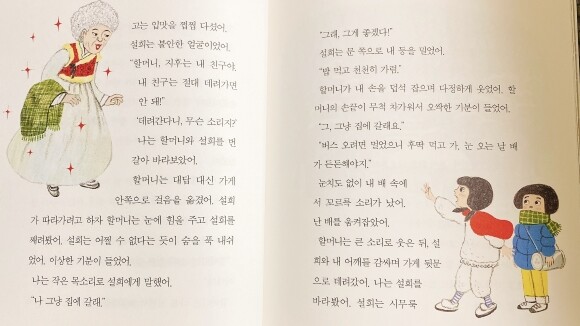 고는 입맛을 쩝쩝 다셨어.
설희는 불안한 얼굴이었어.
"할머니, 지후는 내 친구야.
내 친구는 절대 데려가면
안 돼!"
'데려간다니, 무슨 소리지?'
나는 할머니와 설희를 번
갈아 바라보았어.
할머니는 대답 대신 가게
안쪽으로 걸음을 옮겼어. 설희
가 따라가려고 하자 할머니는 눈에 힘을 주고 설희를
째려봤어. 설희는 어쩔 수 없다는 듯이 숨을 푹 내쉬
었어. 이상한 기분이 들었어.
나는 작은 목소리로 설희에게 말했어.
"나 그냥 집에 갈래."
"그래, 그게 좋겠다!"
설희는 문 쪽으로 내 등을 밀었어.
"밥 먹고 천천히 가렴."
할머니가 내 손을 덥석 잡으며 다정하게 웃었어. 할
머니의 손끝이 무척 차가워서 오싹한 기분이 들었어.
"그, 그냥 집에 갈래요."
"버스 오려면 멀었으니 후딱 먹고 가. 눈 오는 날 배
가 든든해야지."
눈치도 없이 내 배 속에
서 꼬르륵 소리가 났어.
난 배를 움켜잡았어.
할머니는 큰 소리로 웃은 뒤, 설
희와 내 어깨를 감싸며 가게 뒷문
으로 데려갔어. 나는 설희를
바라봤어. 설희는 시무룩